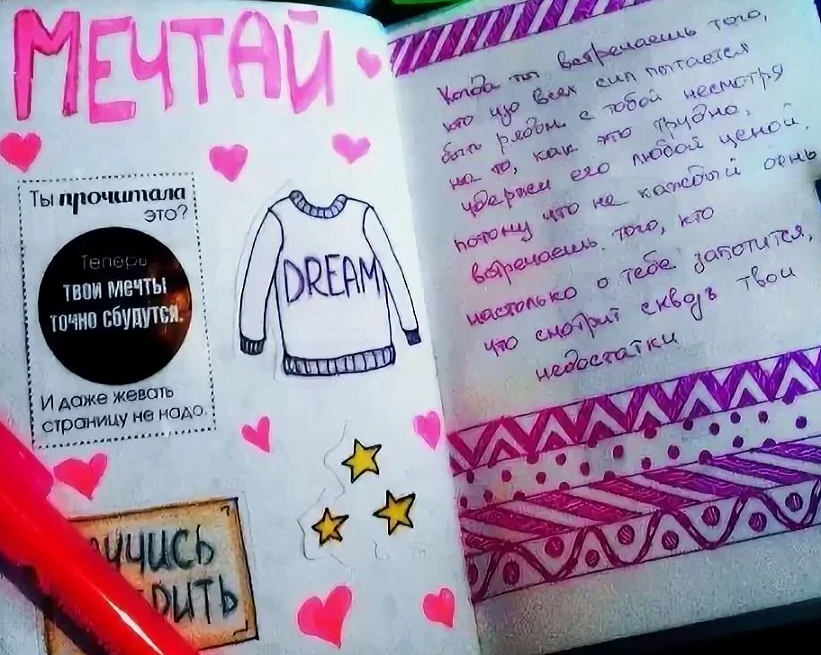 МЕЧТАЙ
Ты прочитала
это?
Теперь
твои мечты
точно сбудутся.
И даже жевать
страницу не надо.
DREAM
Когда ты встречаешь того,
кто изо всех сил пытается
быть рядом с тобой несмотря
на то, как это трудно,
удержи его любой ценой.
потому что не каждый день
встречаешь того, кто
настолько о тебе заботится,
что смотрит сквозь твои
недостатки